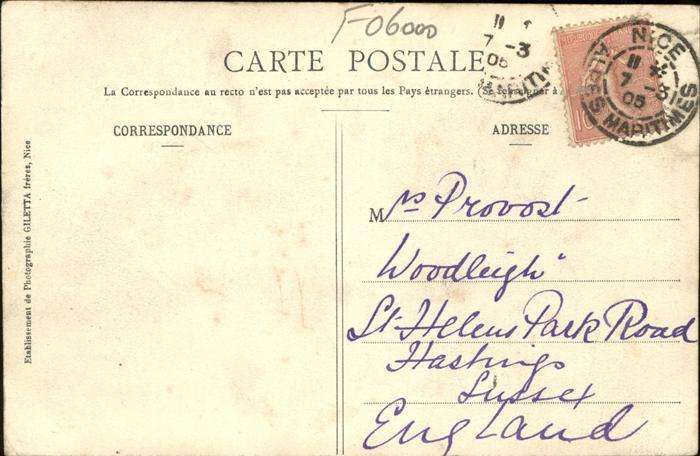 F06000
CARTE POSTALE
La Correspondance au recto n'est pas acceptée par tous les Pays étrangers. (Se renseigner à
CORRESPONDANCE
ADRESSE
NICE
11
7 -3
05
ALPES MARITIMES
11
7 -3
05
Mrs Provost
Woodleigh"
St Helens Park Road
Hastings
Sussex
England
Etablissement de Photographie GILETTA frères, Nice